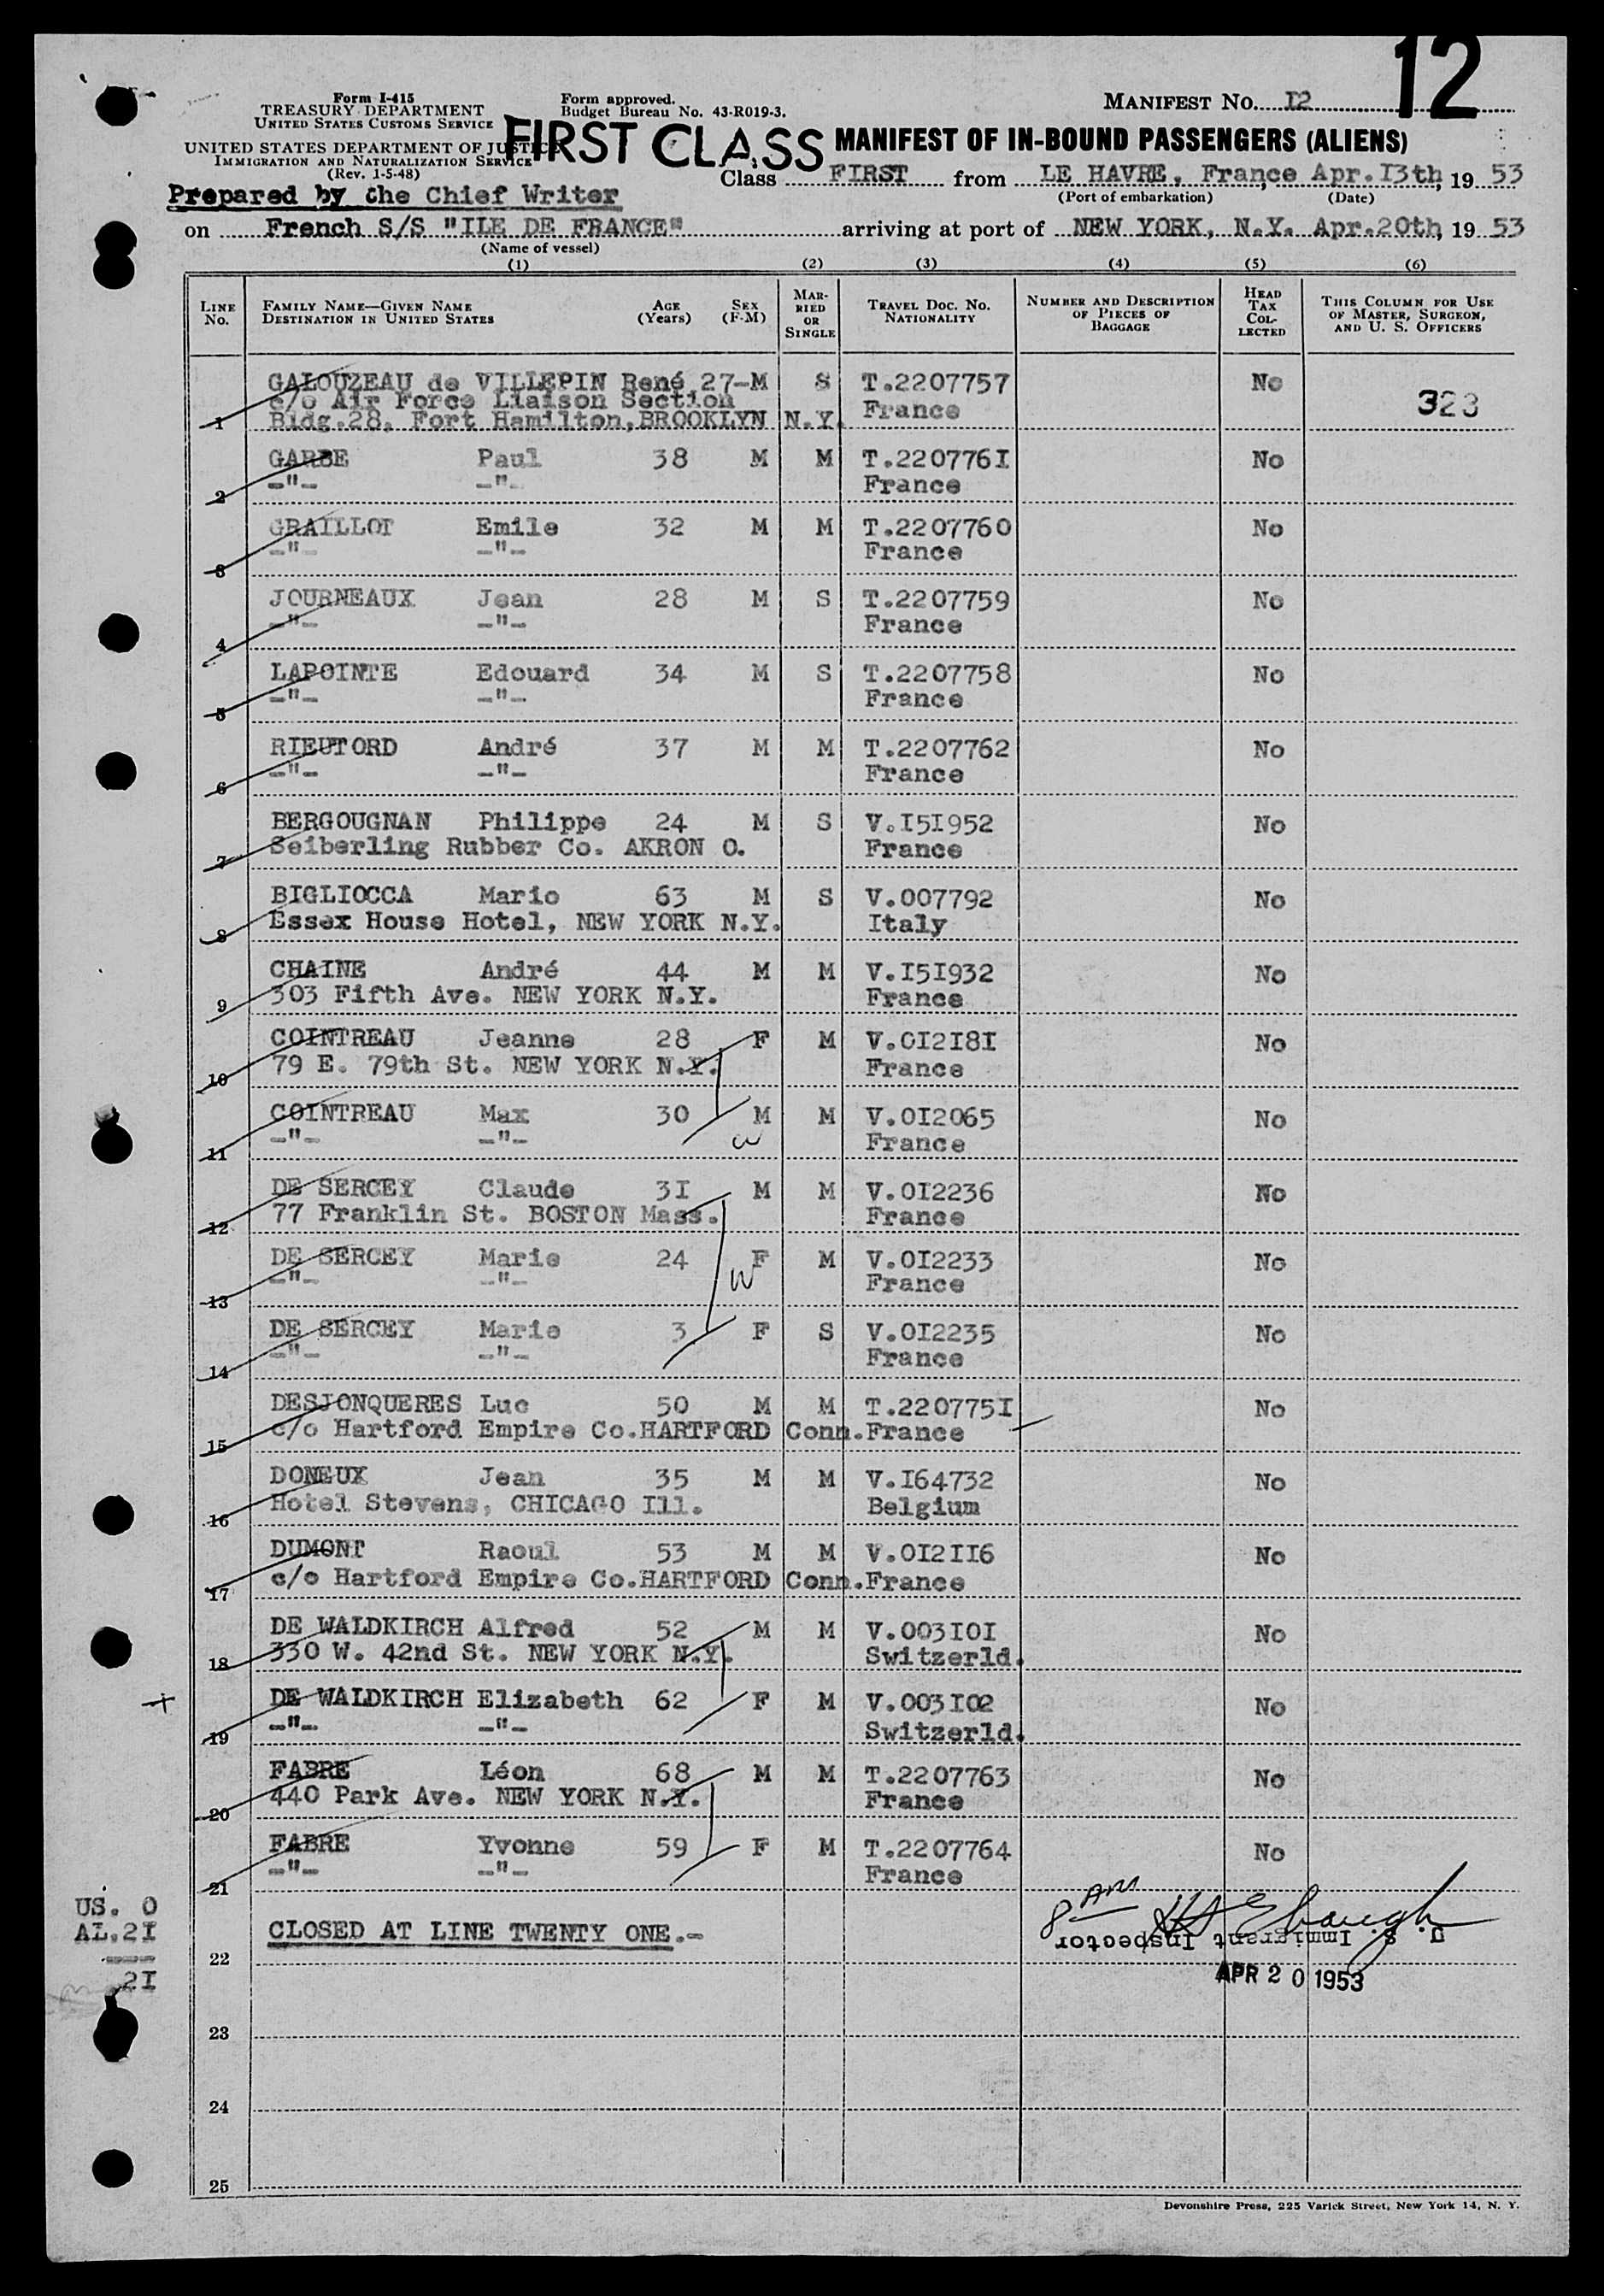 12
Form I-415
TREASURY DEPARTMENT
UNITED STATES CUSTOMS SERVICE
UNITED STATES DEPARTMENT OF JUSTICE
IMMIGRATION AND NATURALIZATION SERVICE
(Rev. 1-5-48)
Form approved.
Budget Bureau No. 43-R019-3.
MANIFEST No. I2
FIRST CLASS
MANIFEST OF IN-BOUND PASSENGERS (ALIENS)
Class FIRST from LE HAVRE, France, Apr.I3th, 19 53
(Port of embarkation) (Date)
Prepared by the Chief Writer
on French S/S "ILE DE FRANCE" arriving at port of NEW YORK, N.Y. Apr.20th, 19 53
(Name of vessel)
(1) (2) (3) (4) (5) (6)
LINE No. FAMILY NAME—GIVEN NAME DESTINATION IN UNITED STATES AGE (Years) SEX (F-M) MARRIED OR SINGLE TRAVEL DOC. NO. NATIONALITY NUMBER AND DESCRIPTION OF PIECES OF BAGGAGE HEAD TAX COLLECTED THIS COLUMN FOR USE OF MASTER, SURGEON, AND U. S. OFFICERS
GALOUZEAU de VILLEPIN René 27-M S T.2207757 No
c/o Air Force Liaison Section France 323
1 Bldg.28, Fort Hamilton,BROOKLYN N.Y.
GARBE Paul 38 M M T.220776I No
2 -"- -"- France
GRAILLOT Emile 32 M M T.2207760 No
3 -"- -"- France
JOURNEAUX Jean 28 M S T.2207759 No
4 -"- -"- France
LAPOINTE Edouard 34 M S T.2207758 No
5 -"- -"- France
RIEUTORD André 37 M M T.2207762 No
6 -"- -"- France
BERGOUGNAN Philippe 24 M S V.I5I952 No
7 Seiberling Rubber Co. AKRON O. France
BIGLIOCCA Mario 63 M S V.007792 No
8 Essex House Hotel, NEW YORK N.Y. Italy
CHAINE André 44 M M V.I5I932 No
9 303 Fifth Ave. NEW YORK N.Y. France
COINTREAU Jeanne 28 F M V.0I2I8I No
10 79 E. 79th St. NEW YORK N.Y. France
COINTREAU Max 30 M M V.0I2065 No
11 -"- -"- France
DE SERCEY Claude 3I M M V.0I2236 No
12 77 Franklin St. BOSTON Mass. France
DE SERCEY Marie 24 F M V.0I2233 No
13 -"- -"- France
DE SERCEY Marie 3 F S V.0I2235 No
14 -"- -"- France
DESJONQUERES Luc 50 M M T.220775I No
15 c/o Hartford Empire Co.HARTFORD Conn.France
DONEUX Jean 35 M M V.I64732 No
16 Hotel Stevens, CHICAGO Ill. Belgium
DUMONT Raoul 53 M M V.0I2II6 No
17 c/o Hartford Empire Co.HARTFORD Conn.France
DE WALDKIRCH Alfred 52 M M V.003I0I No
18 330 W. 42nd St. NEW YORK N.Y. Switzerld.
DE WALDKIRCH Elizabeth 62 F M V.003I02 No
19 -"- -"- Switzerld.
FABRE Léon 68 M M T.2207763 No
20 440 Park Ave. NEW YORK N.Y. France
FABRE Yvonne 59 F M T.2207764 No
21 -"- -"- France
US. 0
AL.2I
2I
22 CLOSED AT LINE TWENTY ONE.-
8 AM
U. S. Immigrant Inspector
APR 20 1953
23
24
25
Devonshire Press, 225 Varick Street, New York 14, N. Y.